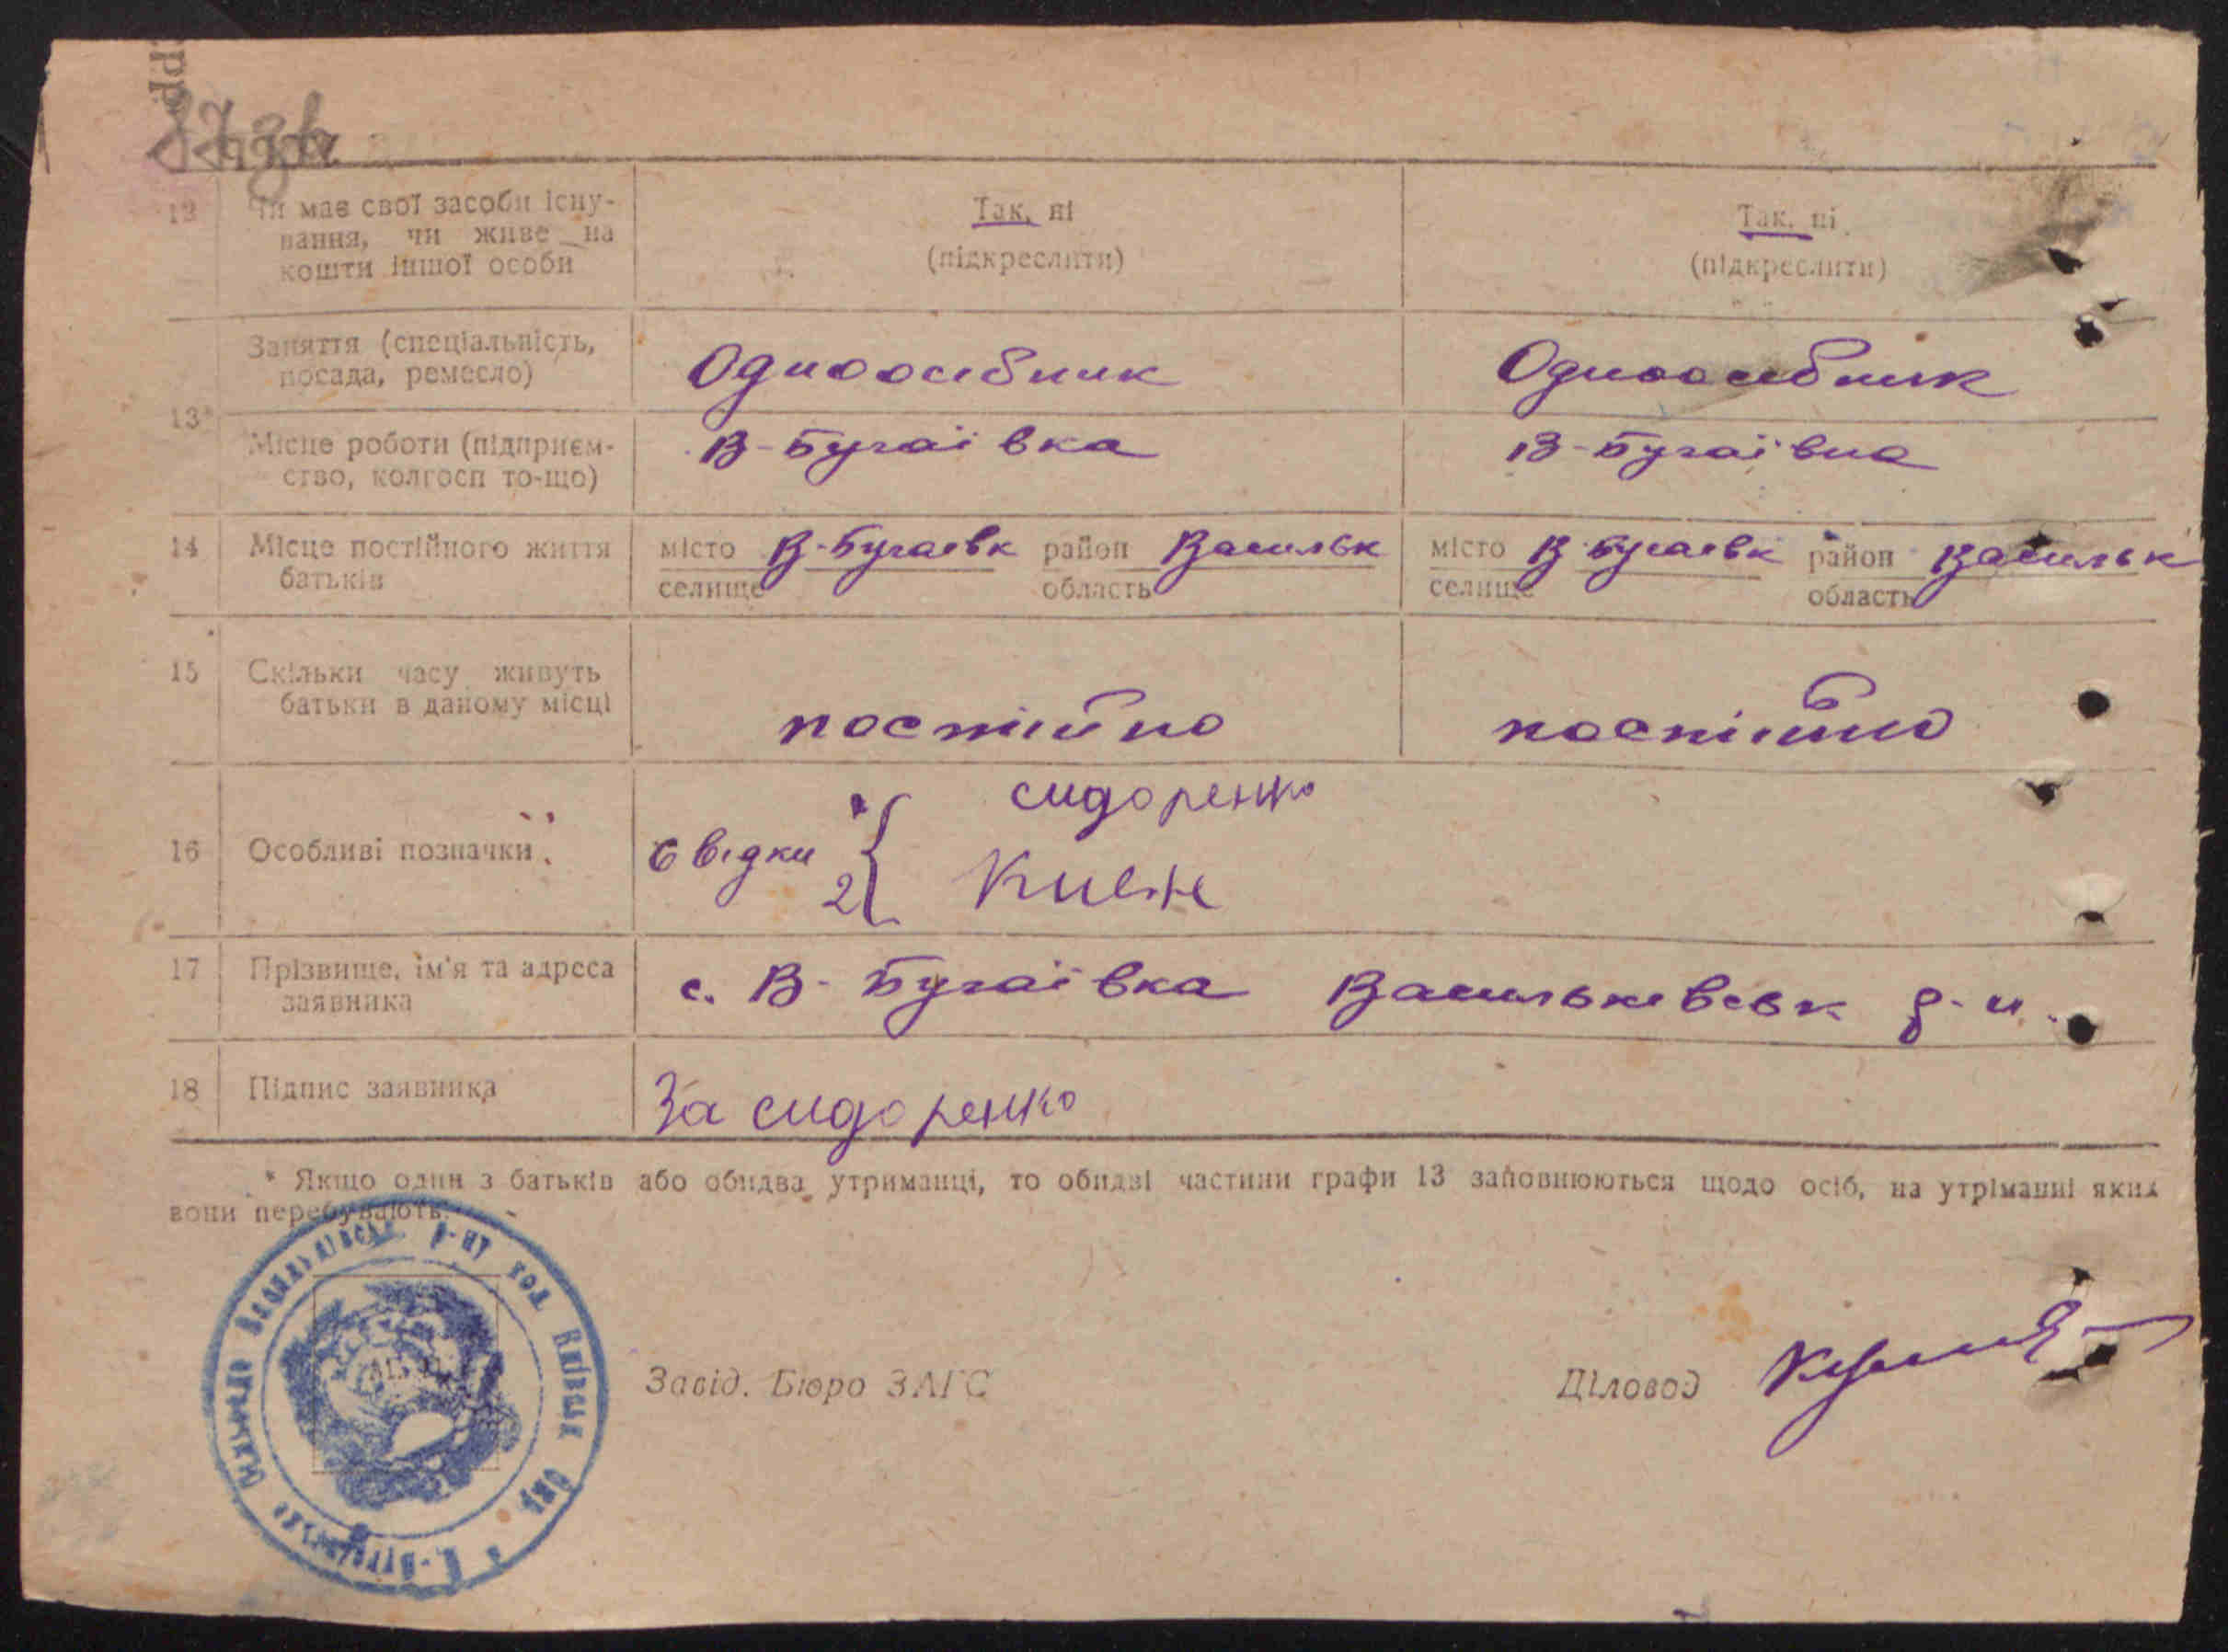 12 Чи має свої засоби існу-
вання, чи живе на
кошти іншої особи
Так, ні
(підкреслити)
Так, ні
(підкреслити)
13*
Заняття (спеціальність,
посада, ремесло)
Одноосібник
Одноосібник
Місце роботи (підприєм-
ство, колгосп то-що)
В-Бугаївка
В-Бугаївка
14 Місце постійного життя
батьків
місто В-Бугаєвк район Васильк
селище область
місто В-Бугаєвк район Васильк
селище область
15 Скільки часу живуть
батьки в даному місці
постійно
постійно
16 Особливі позначки
Свідки
сидоренко
2
17 Прізвище, ім'я та адреса
заявника
с. В-Бугаївка Васильківськ р-н.
18 Підпис заявника
За сидоренко
* Якщо один з батьків або обидва утриманці, то обидві частини графи 13 заповнюються щодо осіб, на утріманні яких
вони перебувають.
Завід. Бюро ЗАГС
Діловод